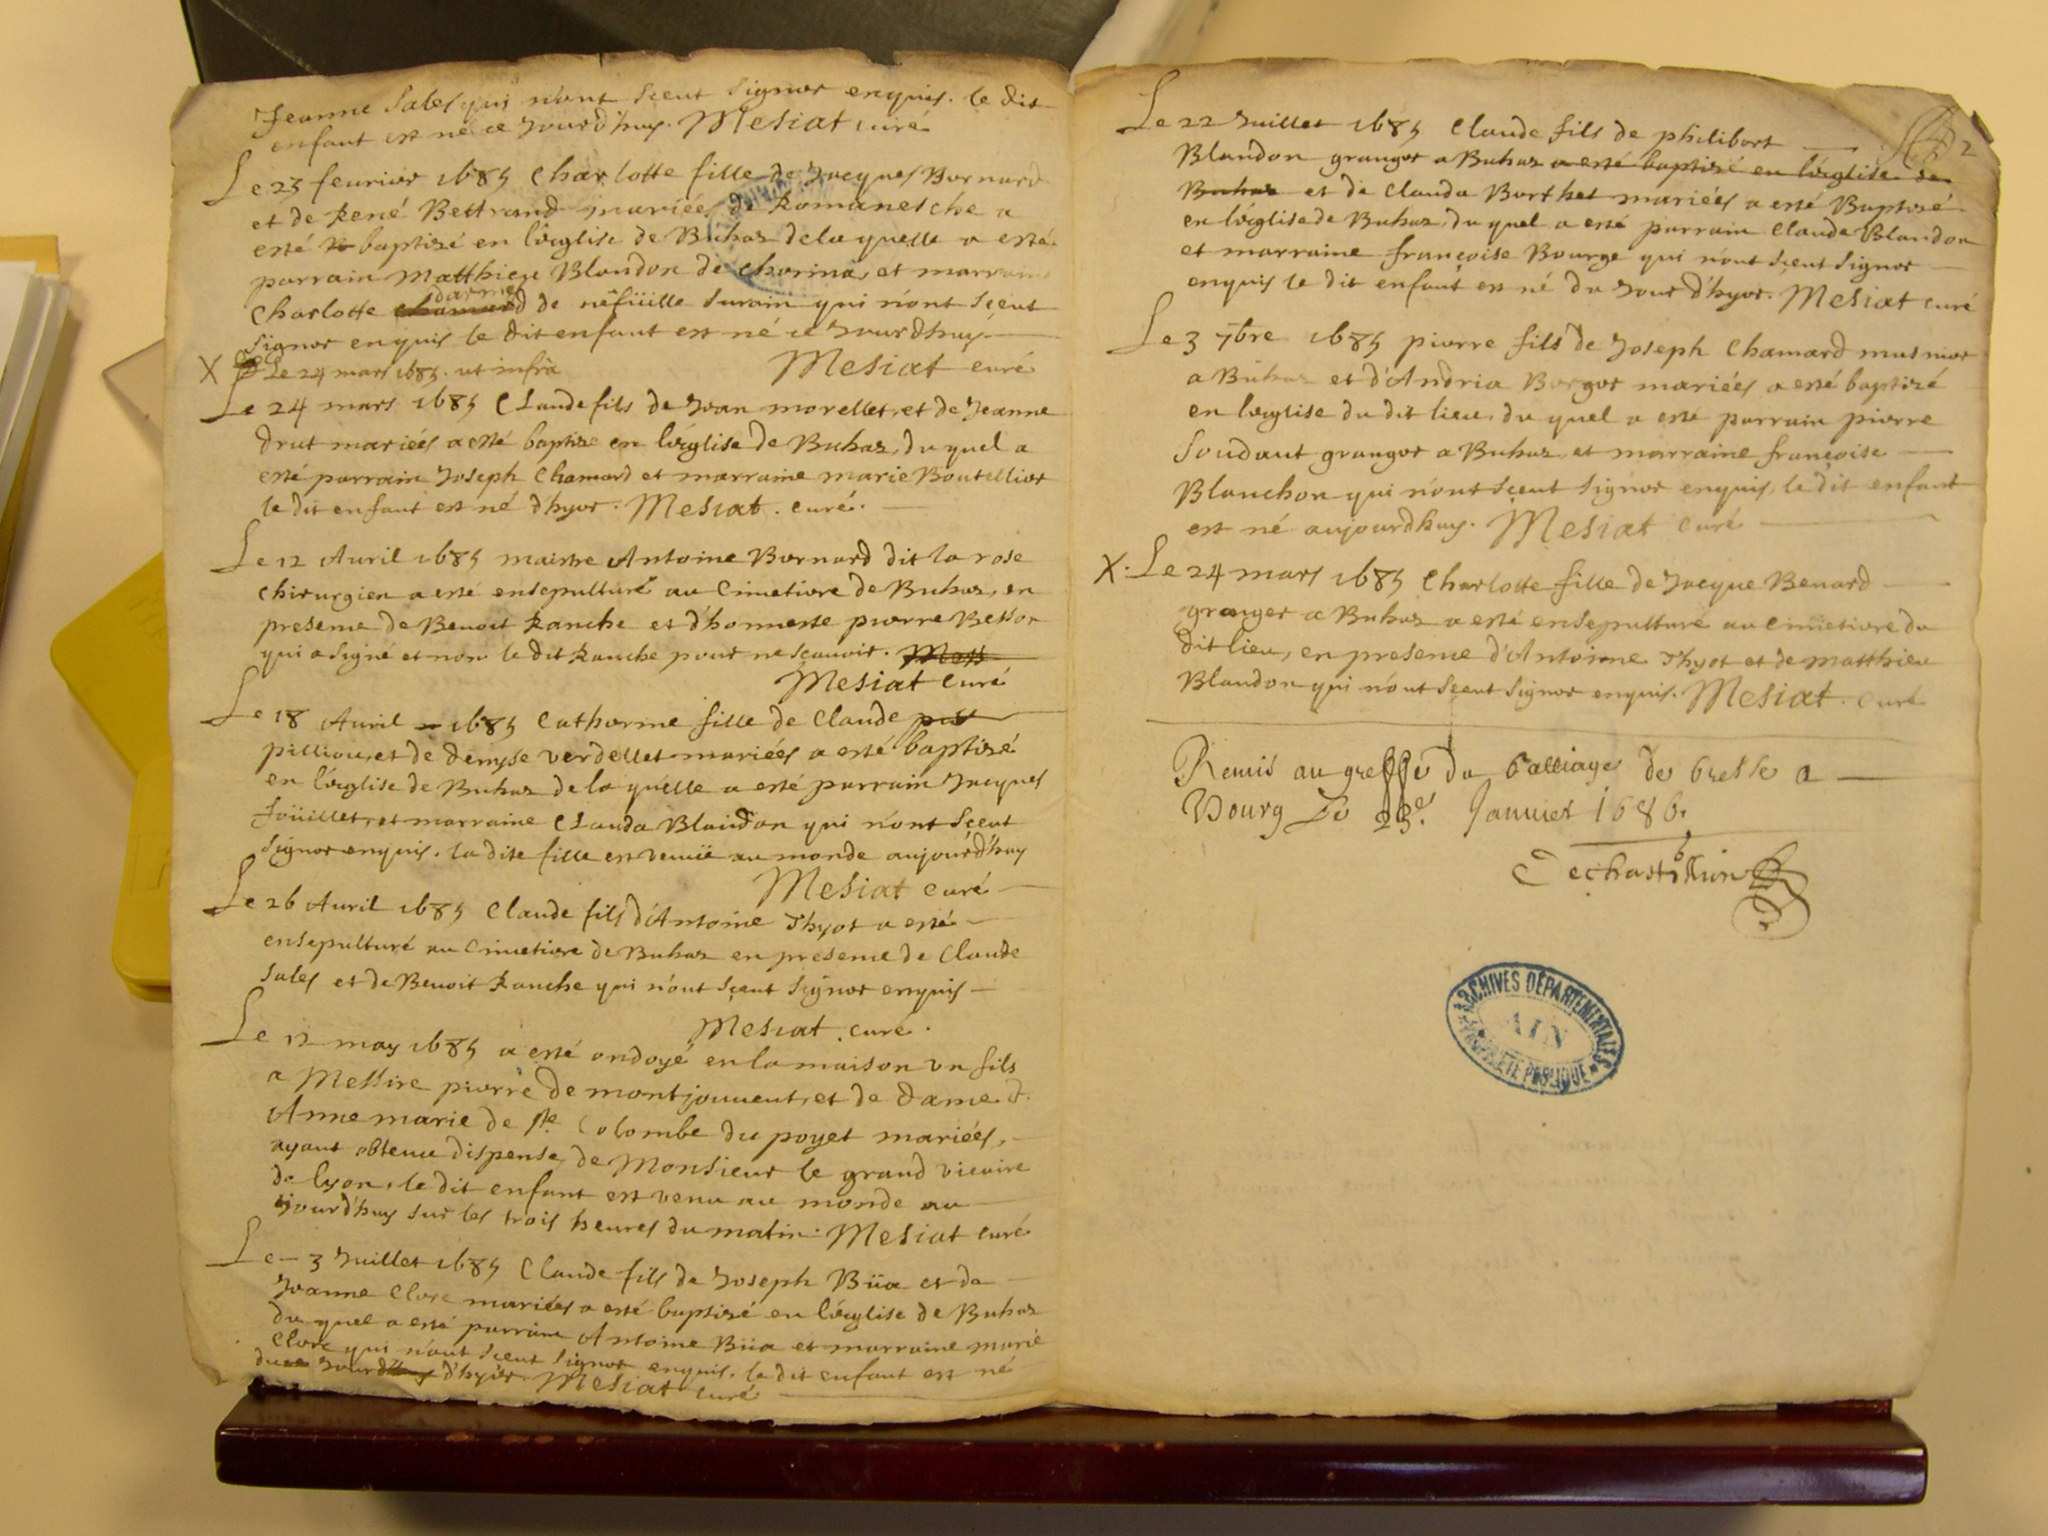 Jeanne Sales qui n'ont sceut signer enquis. le dit
enfant est né ce Jourd'huy. Mesiat curé
Le 23 feurier 1685 Charlotte fille de Jacques Bernard
et de René Bertrand mariées de Romanesche a
esté baptizé en l'église de Buhas de la quelle a esté
parrain Matthieu Blandon de Charinas et marraine
Charlotte darmes de nefüille surain qui n'ont sceut
signer enquis le dit enfant est né ce Jourd'huy
X Le 24 mars 1685. ut infrà Mesiat curé
Le 24 mars 1685 Claude fils de Jean morellet, et de Jeanne
drut mariées a esté baptize en l'église de Buhas, du quel a
esté parrain Joseph Chamard et marraine marie Boutellier
le dit enfant est né d'hyer. Mesiat. curé.
Le 12 Auril 1685 maistre Antoine Bernard dit la rose
chirurgien a esté ensepulturé au Cimetiere de Buhas, en
presence de Benoit Ranche et d'honneste pierre Besson
qui a signé et non le dit Ranche pour ne scauoir. Mess
Mesiat Curé
Le 18 Auril 1685 Catherine fille de Claude pill
pilliou, et de denyse verdellet mariées a esté baptizé
en l'église de Buhas de la quelle a esté parrain Jacques
foüillet, et marraine Clauda Blandon qui n'ont sceut
signer enquis. la dite fille est venuë au monde aujourd'huy
Mesiat curé
Le 26 Auril 1685 Claude fils d'Antoine Thyot a esté
ensepulturé au Cimetiere de Buhas en presence de Claude
Sales et de Benoit Ranche qui n'ont sceut signer enquis
Mesiat. curé.
Le 12 may 1685 a esté ondoyé en la maison vn fils
a Messire pierre de montjouuent, et de dame d.
Anne marie de ste Colombe du poyet mariées,
ayant obtenu dispense de Monsieur le grand vicaire
de lyon, le dit enfant est venu au monde au
jourd'huy sur les trois heures du matin. Mesiat curé
Le 3 Juillet 1685 Claude fils de Joseph Büa et de
Jeanne Clerc mariées a esté baptizé en l'église de Buhas
du quel a esté parrain Antoine Büa et marraine marie
Clerc qui n'ont sceut signer enquis. le dit enfant est né
du Jourd'huy d'hyer. Mesiat curé
2
Le 22 Juillet 1685 Claude fils de philibert
Blandon granger a Buhas a esté baptizé en l'église de
Buhas et de Clauda Borthet mariées a esté Baptizé
en l'église de Buhas, du quel a esté parrain Claude Blandon
et marraine françoise Bourge qui n'ont sceut signer
enquis le dit enfant est né du Jour d'hyer. Mesiat curé
Le 3 7bre 1685 pierre fils de Joseph Chamard musnier
a Buhas et d'Andria Borger mariées a esté baptizé
en l'église du dit lieu, du quel a esté parrain pierre
Soudant granger a Buhas, et marraine françoise
Blanchon qui n'ont sceut signer enquis, le dit enfant
est né aujourd'huy. Mesiat Curé
X. Le 24 mars 1685 Charlotte fille de Jacque Benard
granger a Buhas a esté ensepulturé au Cimetiere du
dit lieu, en presence d'Antoine Thyot et de matthieu
Blandon qui n'ont sceut signer enquis. Mesiat. Curé
Remis au greffe du balliage de bresse a
Bourg Le 23e. Januier 1686.
Dechastillion
ARCHIVES DÉPARTEMENTALES
AIN
PROPRIÉTÉ PUBLIQUE